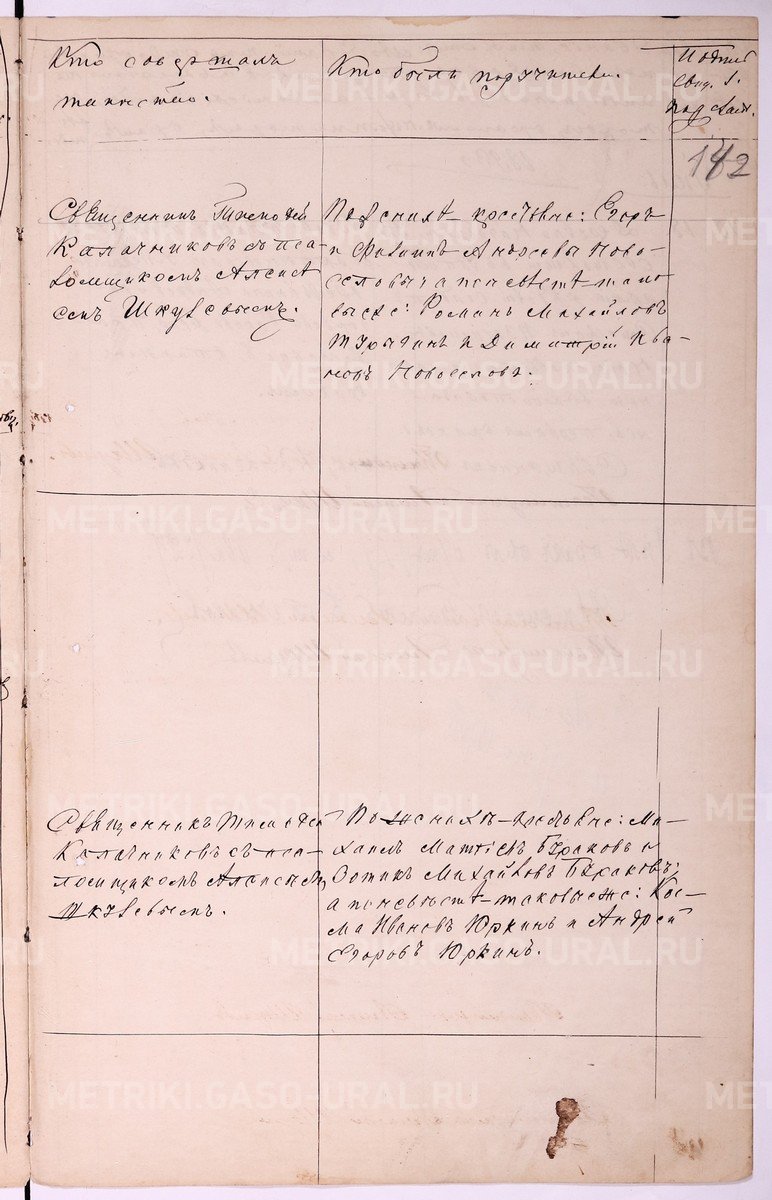 Кто совершалъ
таинство.
Кто были поручители.
Подпис
свид.
142
Священникъ Тимофей
Калачниковъ съ пса-
ломщикомъ Алексѣ
емъ Шкулевымъ.
По женихѣ крестьяне: Егоръ
и Филиппъ Ново-
селовы; а по невѣстѣ тако
выеже: Романъ Михайловъ
и Димитрій Ива-
новъ Новоселовъ.
Священникъ Тимофей
Калачниковъ съ пса-
ломщикомъ Алексѣемъ
Шкулевымъ.
По женихѣ крестьяне: Ми-
хаилъ Бураковъ и
Зотикъ Михайловъ Бураковъ;
а по невѣстѣ таковыеже: Кос-
ма Ивановъ Юркинъ и Андрей
Егоровъ Юркинъ.
METRIKI.GASO-URAL.RU